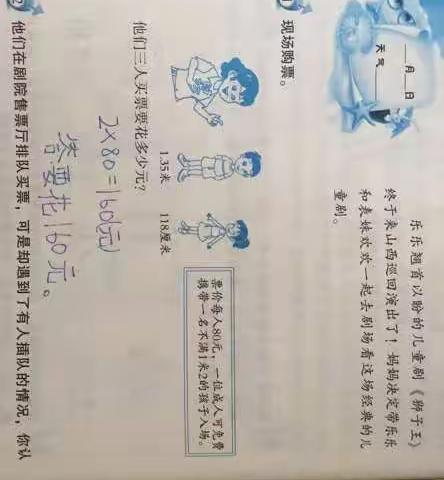 月 日
天气
乐乐翘首以盼的儿童剧《狮子王》
终于来山西巡回演出了！妈妈决定带乐乐
和表妹欢欢一起去剧场看这场经典的儿
童剧。
现场购票。
1.35米
118厘米
票价每人80元，一位成人可免费
携带一名不满1米2的孩子入场。
他们三人买票要花多少元？
2×80=160(元)
答:要花160元。
他们在剧院售票厅排队买票，可是却遇到了有人插队的情况，你认